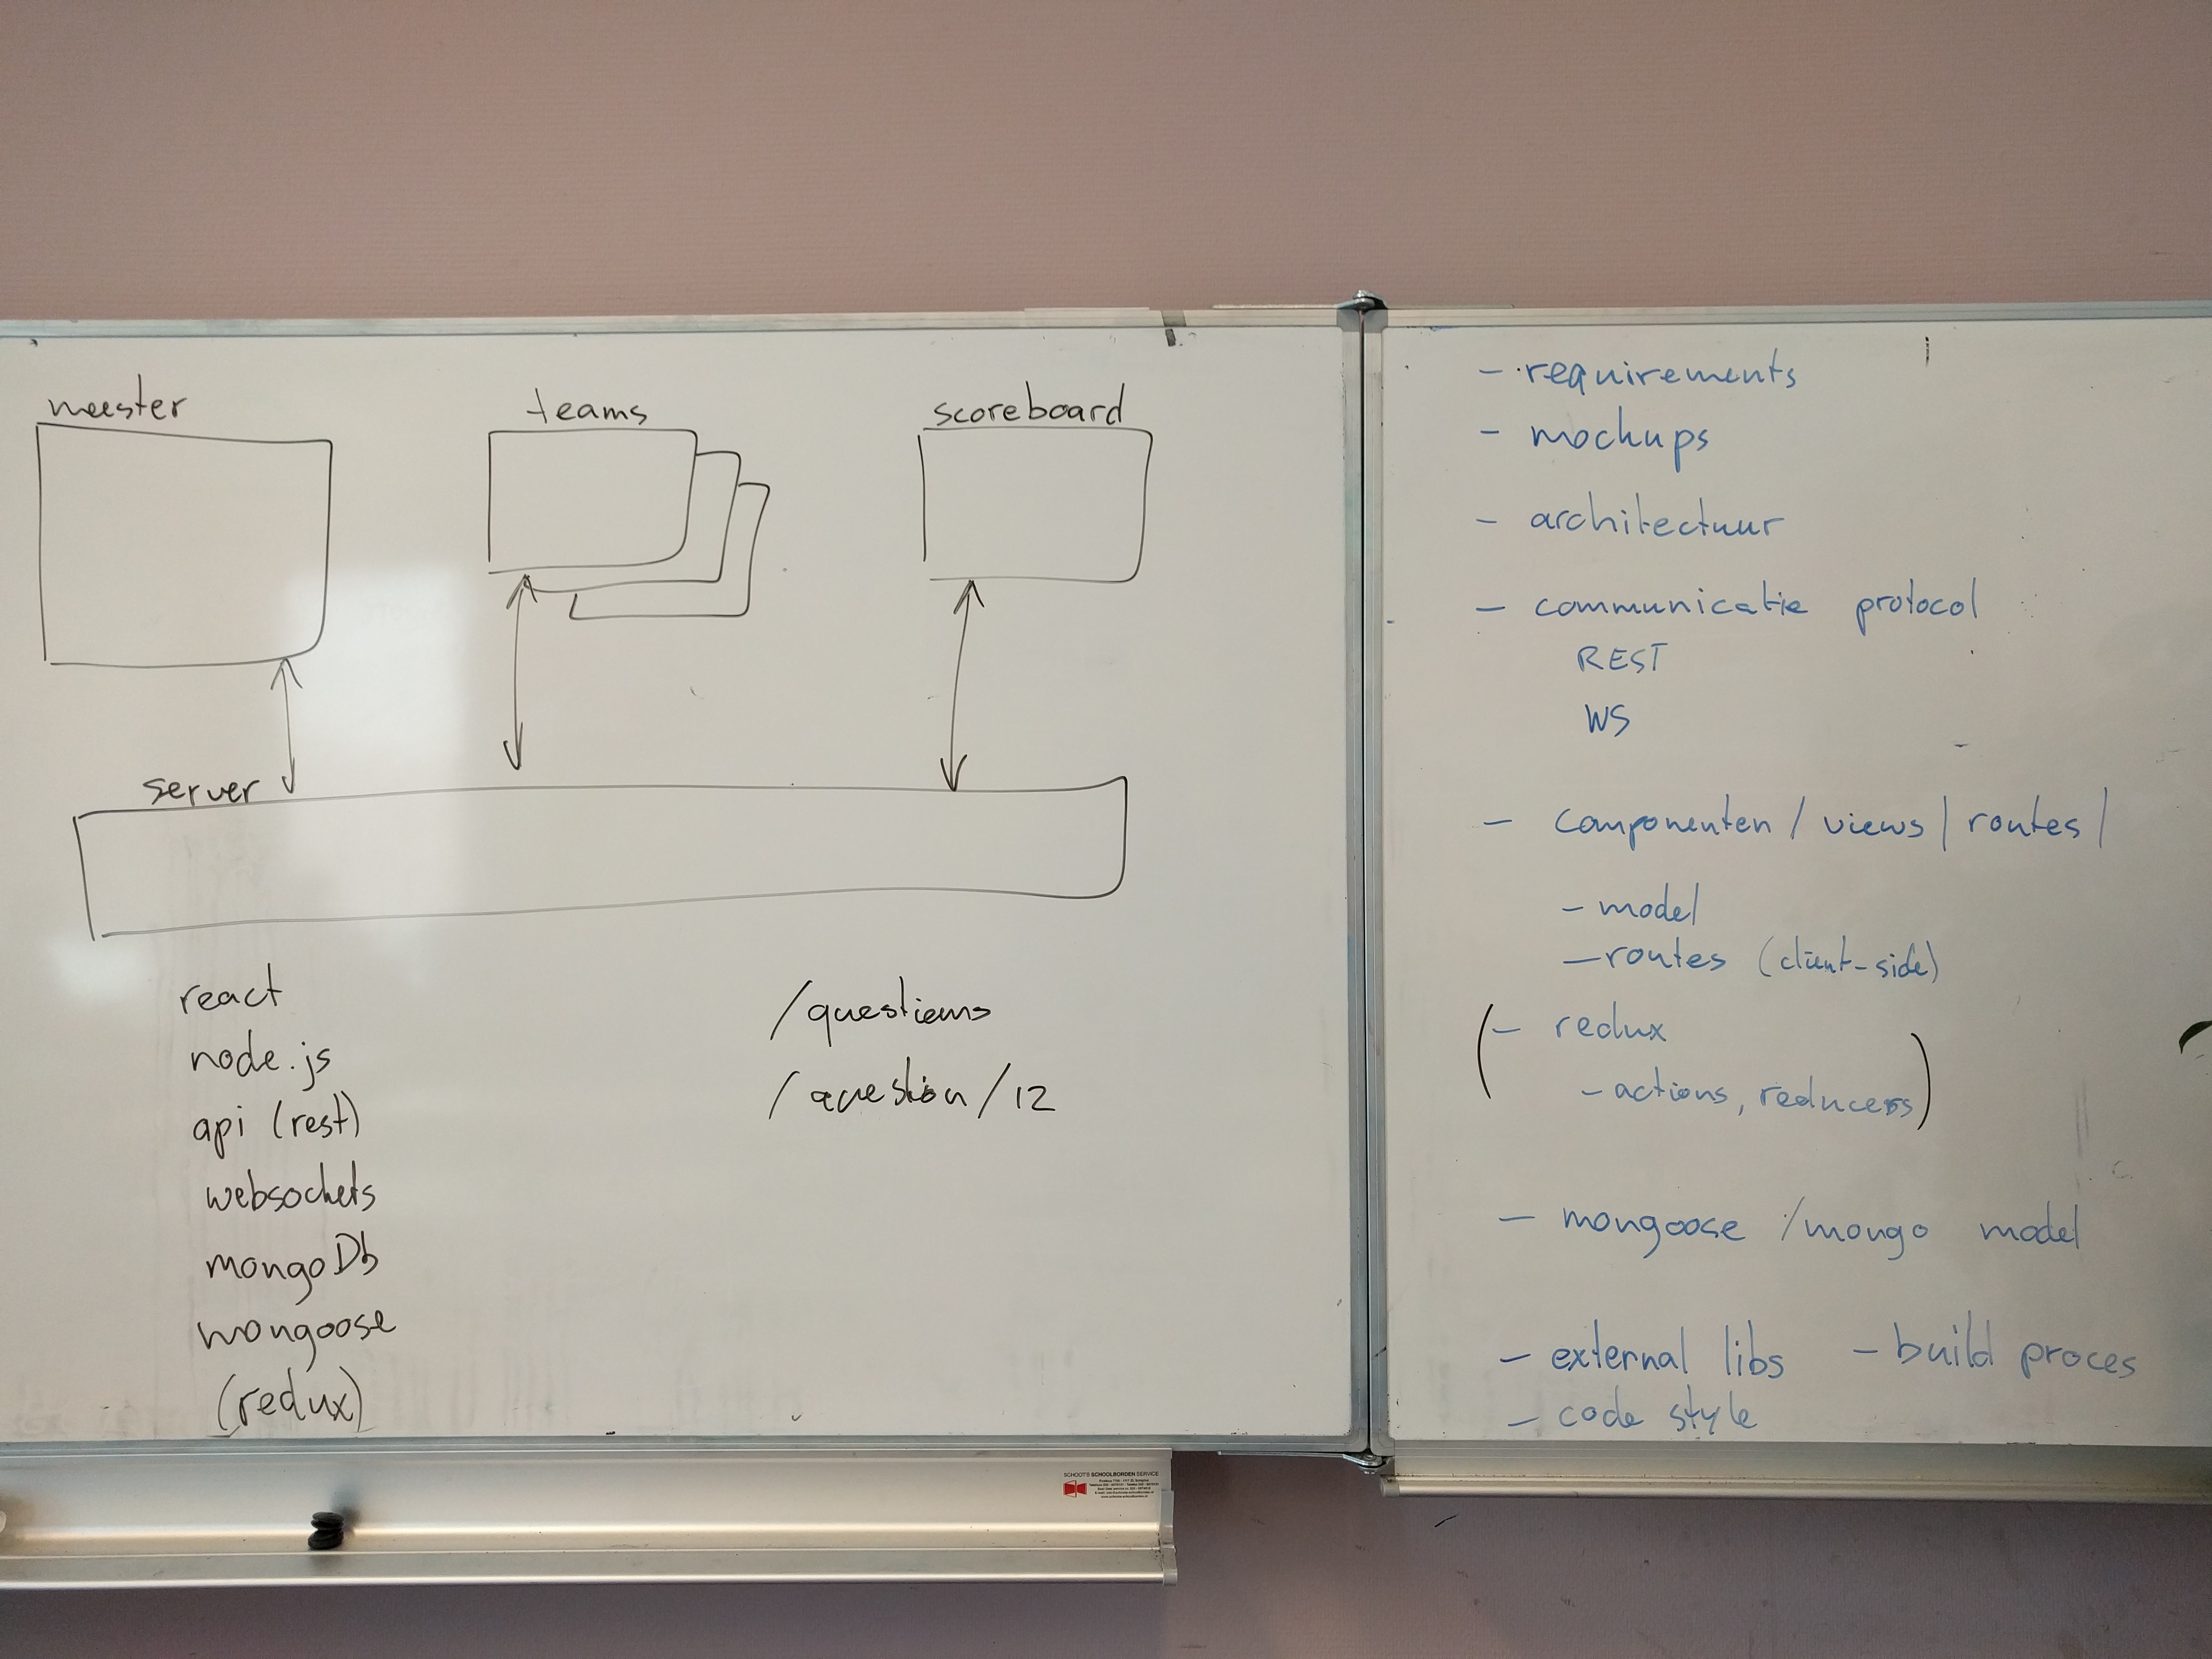 meester
teams
scoreboard
server
react
node.js
api (rest)
websockets
mongoDb
mongoose
(redux)
/questions
/question/12
- requirements
- mockups
- architectuur
- communicatie protocol
REST
WS
- componenten / views | routes |
- model
- routes (client-side)
(- redux
- actions, reducers)
- mongoose / mongo model
- external libs - build proces
- code style
SCHOOT'S SCHOOLBORDEN SERVICE